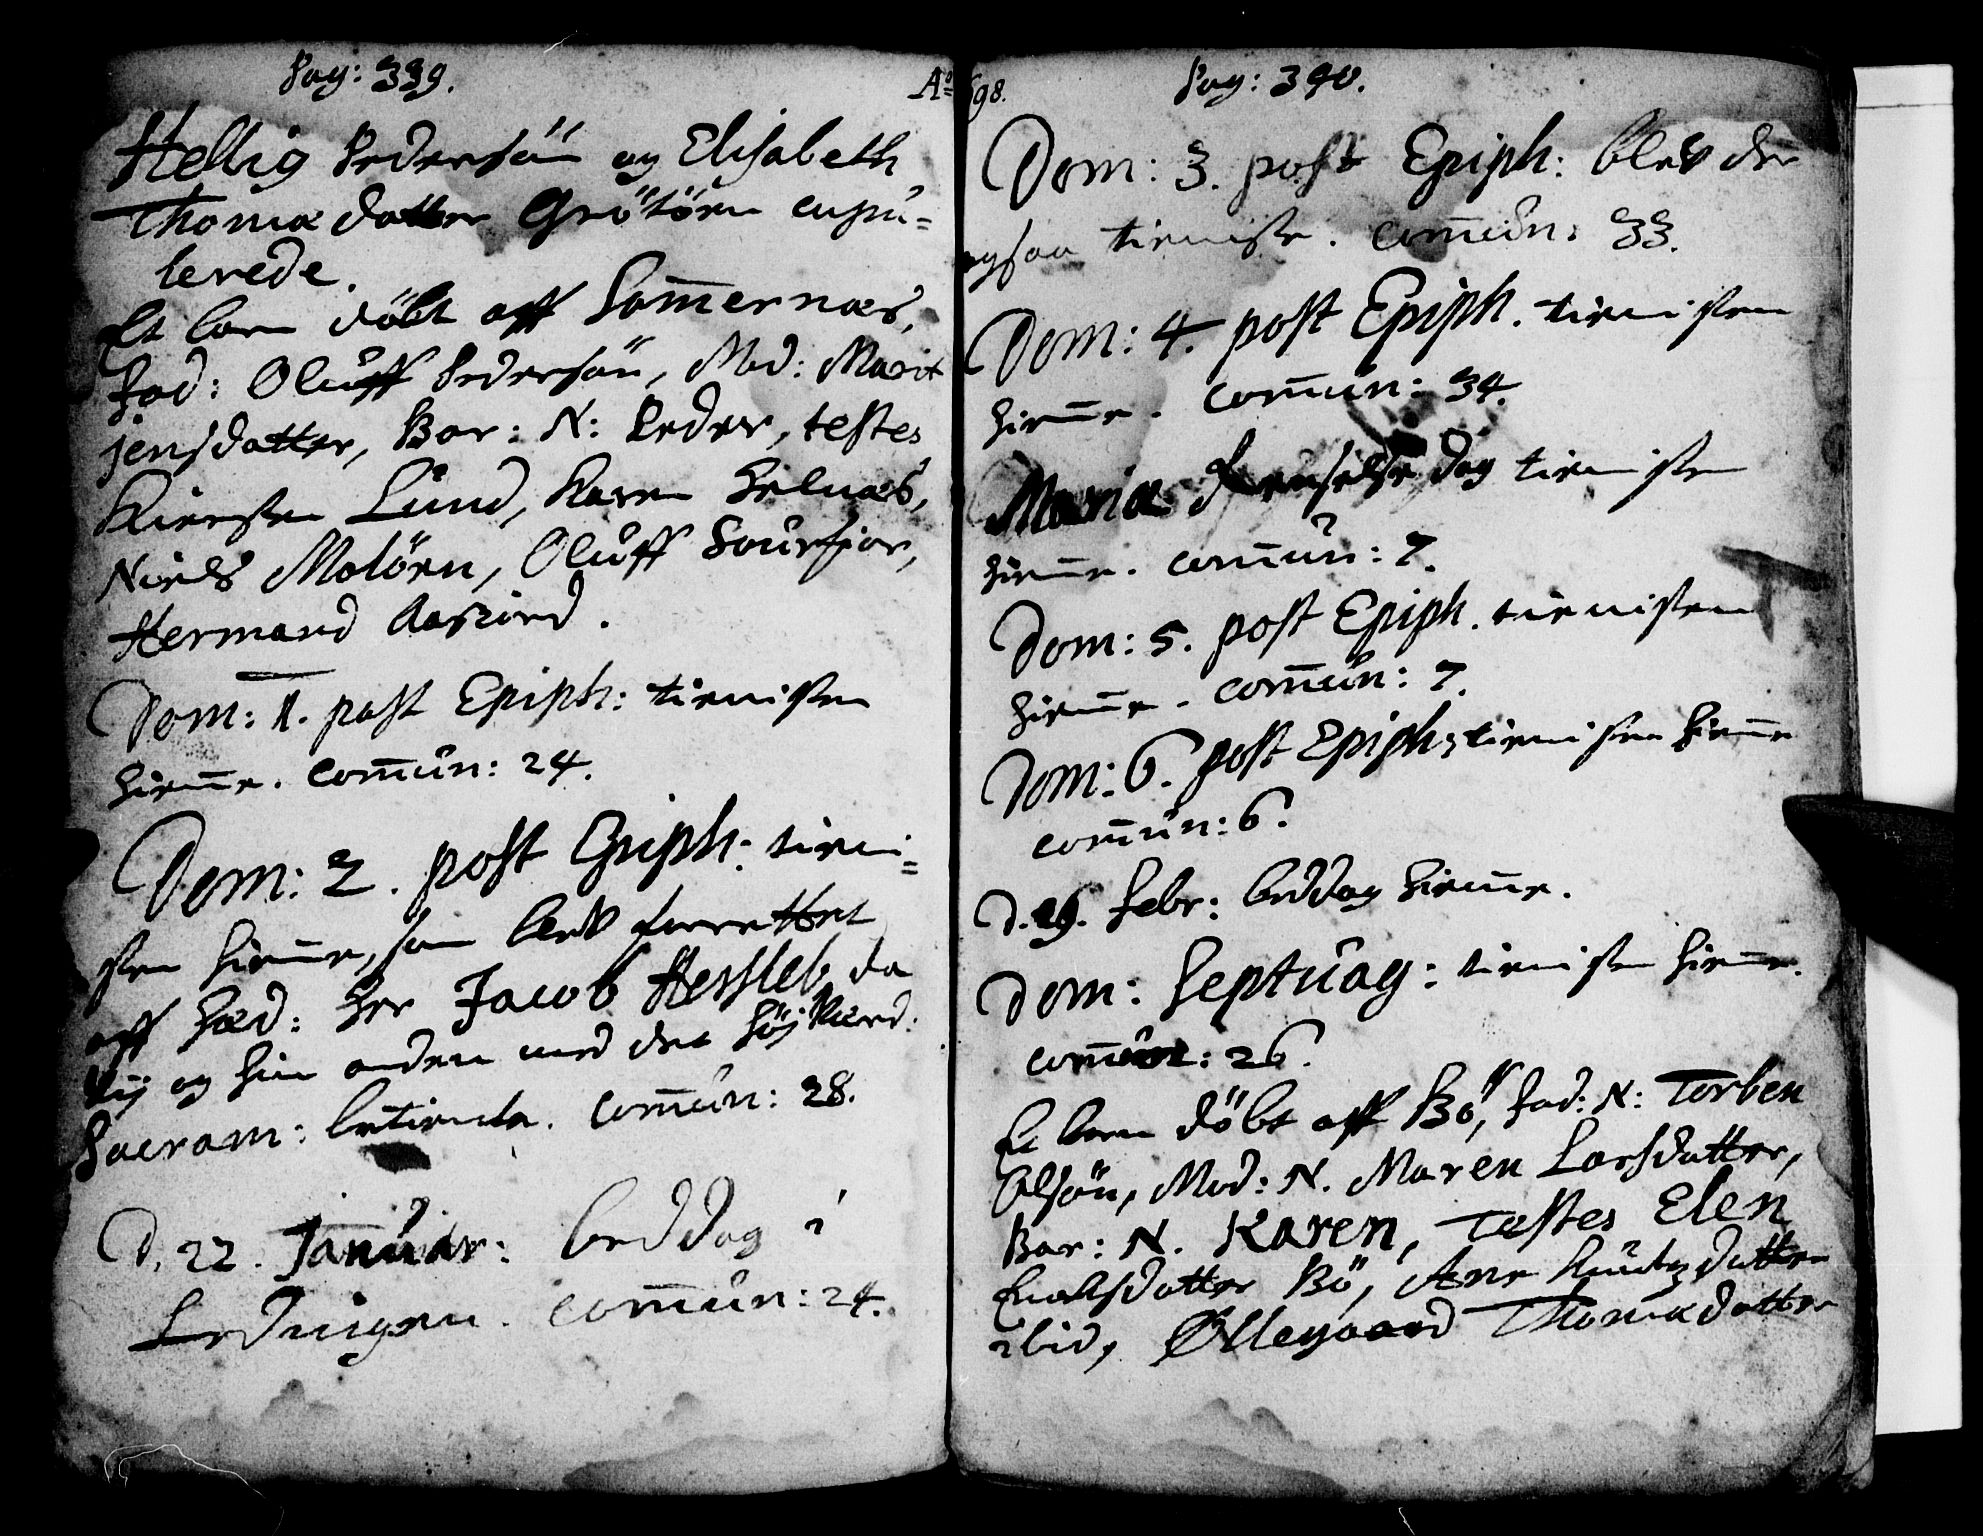 Pag: 339.
Hellig Pedersön og Elisabeth
Thomæ datter Grötöen cupu=
lerede.
Et barn döbt aff Sommernæs,
Fad: Oluff Pedersön, Mod: Marit
jensdatter, Bar: N: Peder, testes
Kiersten Lund, Karen Helnæs,
Niels Molöen, Oluff Sourfior,
Hermand
Dom: 1. post Epiph: tienisten
hieme. Comun: 24.
Dom: 2. post Epiph: tieni=
sten hieme, som bleb forrettet
aff Hæd: Her Jacob Hersleb, da
vij og hin anden med det Höjværd:
Sacram: betiente. Comun: 28.
D. 22. Januar: beddag i
Lødingen. Comun: 24.
Aº 698.
Pag: 340.
Dom: 3. post Epiph: bleb der
ogsaa tieniste. Comun: 33.
Dom: 4. post Epiph. tienisten
hieme. Comun: 34.
Mariæ Renselse dag tienisten
hieme. Comun: 7.
Dom: 5. post Epiph. tienisten
hieme. Comun: 7.
Dom: 6. post Epiph: tienisten hieme
Comun: 6.
D. 19. Febr: beddag hieme.
Dom: Septuag: tienisten hieme.
Comun: 26.
Et barn döbt aff Bö, Fad: N: Torben
Olsön, Mod: N. Maren Larsdatter,
Bar: N. Karen, Testes Elen
Enolsdatter Bö, Ane Knudtzdatter
ibid, Ollegaard Thomæ datter